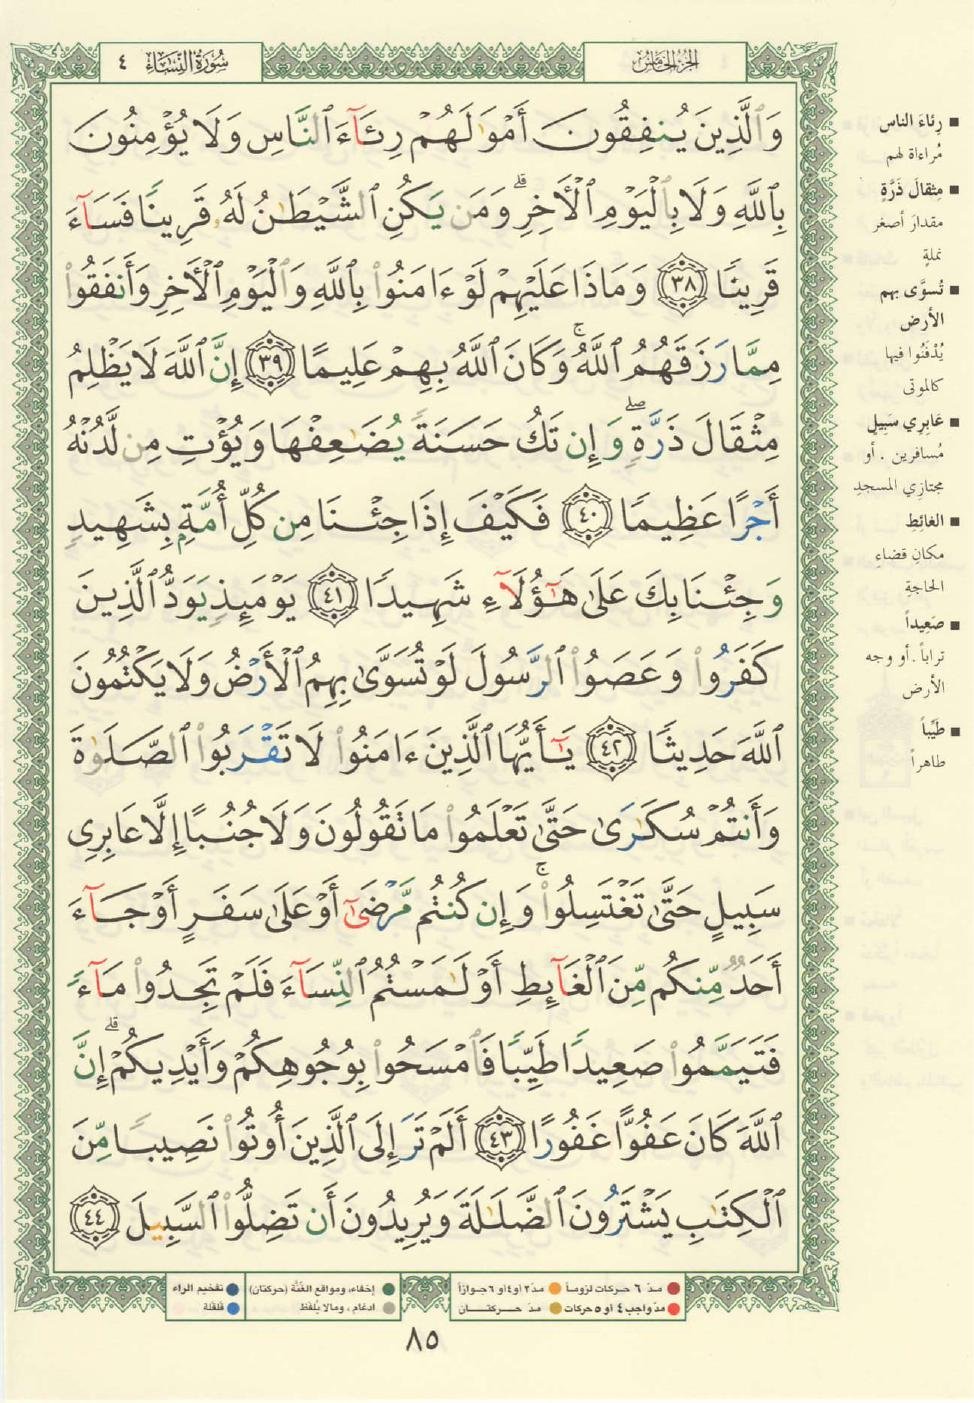 سُورَةُ النِّسَاءِ ٤
الجُزءُ الخَامِسُ
وَٱلَّذِينَ يُنفِقُونَ أَمْوَٰلَهُمْ رِئَآءَ ٱلنَّاسِ وَلَا يُؤْمِنُونَ
بِٱللَّهِ وَلَا بِٱلْيَوْمِ ٱلْأَخِرِ ۗ وَمَن يَكُنِ ٱلشَّيْطَٰنُ لَهُۥ قَرِينًا فَسَآءَ
قَرِينًا ٣٨ وَمَاذَا عَلَيْهِمْ لَوْ ءَامَنُوا۟ بِٱللَّهِ وَٱلْيَوْمِ ٱلْأَخِرِ وَأَنفَقُوا۟
مِمَّا رَزَقَهُمُ ٱللَّهُ ۚ وَكَانَ ٱللَّهُ بِهِمْ عَلِيمًا ٣٩ إِنَّ ٱللَّهَ لَا يَظْلِمُ
مِثْقَالَ ذَرَّةٍ ۖ وَإِن تَكُ حَسَنَةً يُضَٰعِفْهَا وَيُؤْتِ مِن لَّدُنْهُ
أَجْرًا عَظِيمًا ٤٠ فَكَيْفَ إِذَا جِئْنَا مِن كُلِّ أُمَّةٍ بِشَهِيدٍ
وَجِئْنَا بِكَ عَلَىٰ هَٰٓؤُلَآءِ شَهِيدًا ٤١ يَوْمَئِذٍ يَوَدُّ ٱلَّذِينَ
كَفَرُوا۟ وَعَصَوُا۟ ٱلرَّسُولَ لَوْ تُسَوَّىٰ بِهِمُ ٱلْأَرْضُ وَلَا يَكْتُمُونَ
ٱللَّهَ حَدِيثًا ٤٢ يَٰٓأَيُّهَا ٱلَّذِينَ ءَامَنُوا۟ لَا تَقْرَبُوا۟ ٱلصَّلَوٰةَ
وَأَنتُمْ سُكَٰرَىٰ حَتَّىٰ تَعْلَمُوا۟ مَا تَقُولُونَ وَلَا جُنُبًا إِلَّا عَابِرِى
سَبِيلٍ حَتَّىٰ تَغْتَسِلُوا۟ ۚ وَإِن كُنتُم مَّرْضَىٰٓ أَوْ عَلَىٰ سَفَرٍ أَوْ جَآءَ
أَحَدٌ مِّنكُم مِّنَ ٱلْغَآئِطِ أَوْ لَٰمَسْتُمُ ٱلنِّسَآءَ فَلَمْ تَجِدُوا۟ مَآءً
فَتَيَمَّمُوا۟ صَعِيدًا طَيِّبًا فَٱمْسَحُوا۟ بِوُجُوهِكُمْ وَأَيْدِيكُمْ ۗ إِنَّ
ٱللَّهَ كَانَ عَفُوًّا غَفُورًا ٤٣ أَلَمْ تَرَ إِلَى ٱلَّذِينَ أُوتُوا۟ نَصِيبًا مِّنَ
ٱلْكِتَٰبِ يَشْتَرُونَ ٱلضَّلَٰلَةَ وَيُرِيدُونَ أَن تَضِلُّوا۟ ٱلسَّبِيلَ ٤٤
رِئاءَ الناس
مُراءاةً لهم
مِثقالَ ذَرَّةٍ
مقدارَ أصغر
نملةٍ
تُسوَّى بهم
الأرض
يُدْفَنُوا فيها
كالموتى
عَابِرِي سَبيلٍ
مُسافرين . أو
مجتازي المسجدِ
الغائِطِ
مكانِ قضاءِ
الحاجةِ
صَعِيداً
تراباً . أو وجه
الأرض
طَيِّباً
طاهراً
مدّ ٦ حركات لزوماً
مدّ ٢ أو ٤ أو ٦ جوازاً
إخفاء، ومواقع الغُنَّة (حركتان)
تفخيم الراء
مدّ واجب ٤ أو ٥ حركات
مدّ حركتان
ادغام ، ومالا يُلفَظ
قلقلة
٨٥